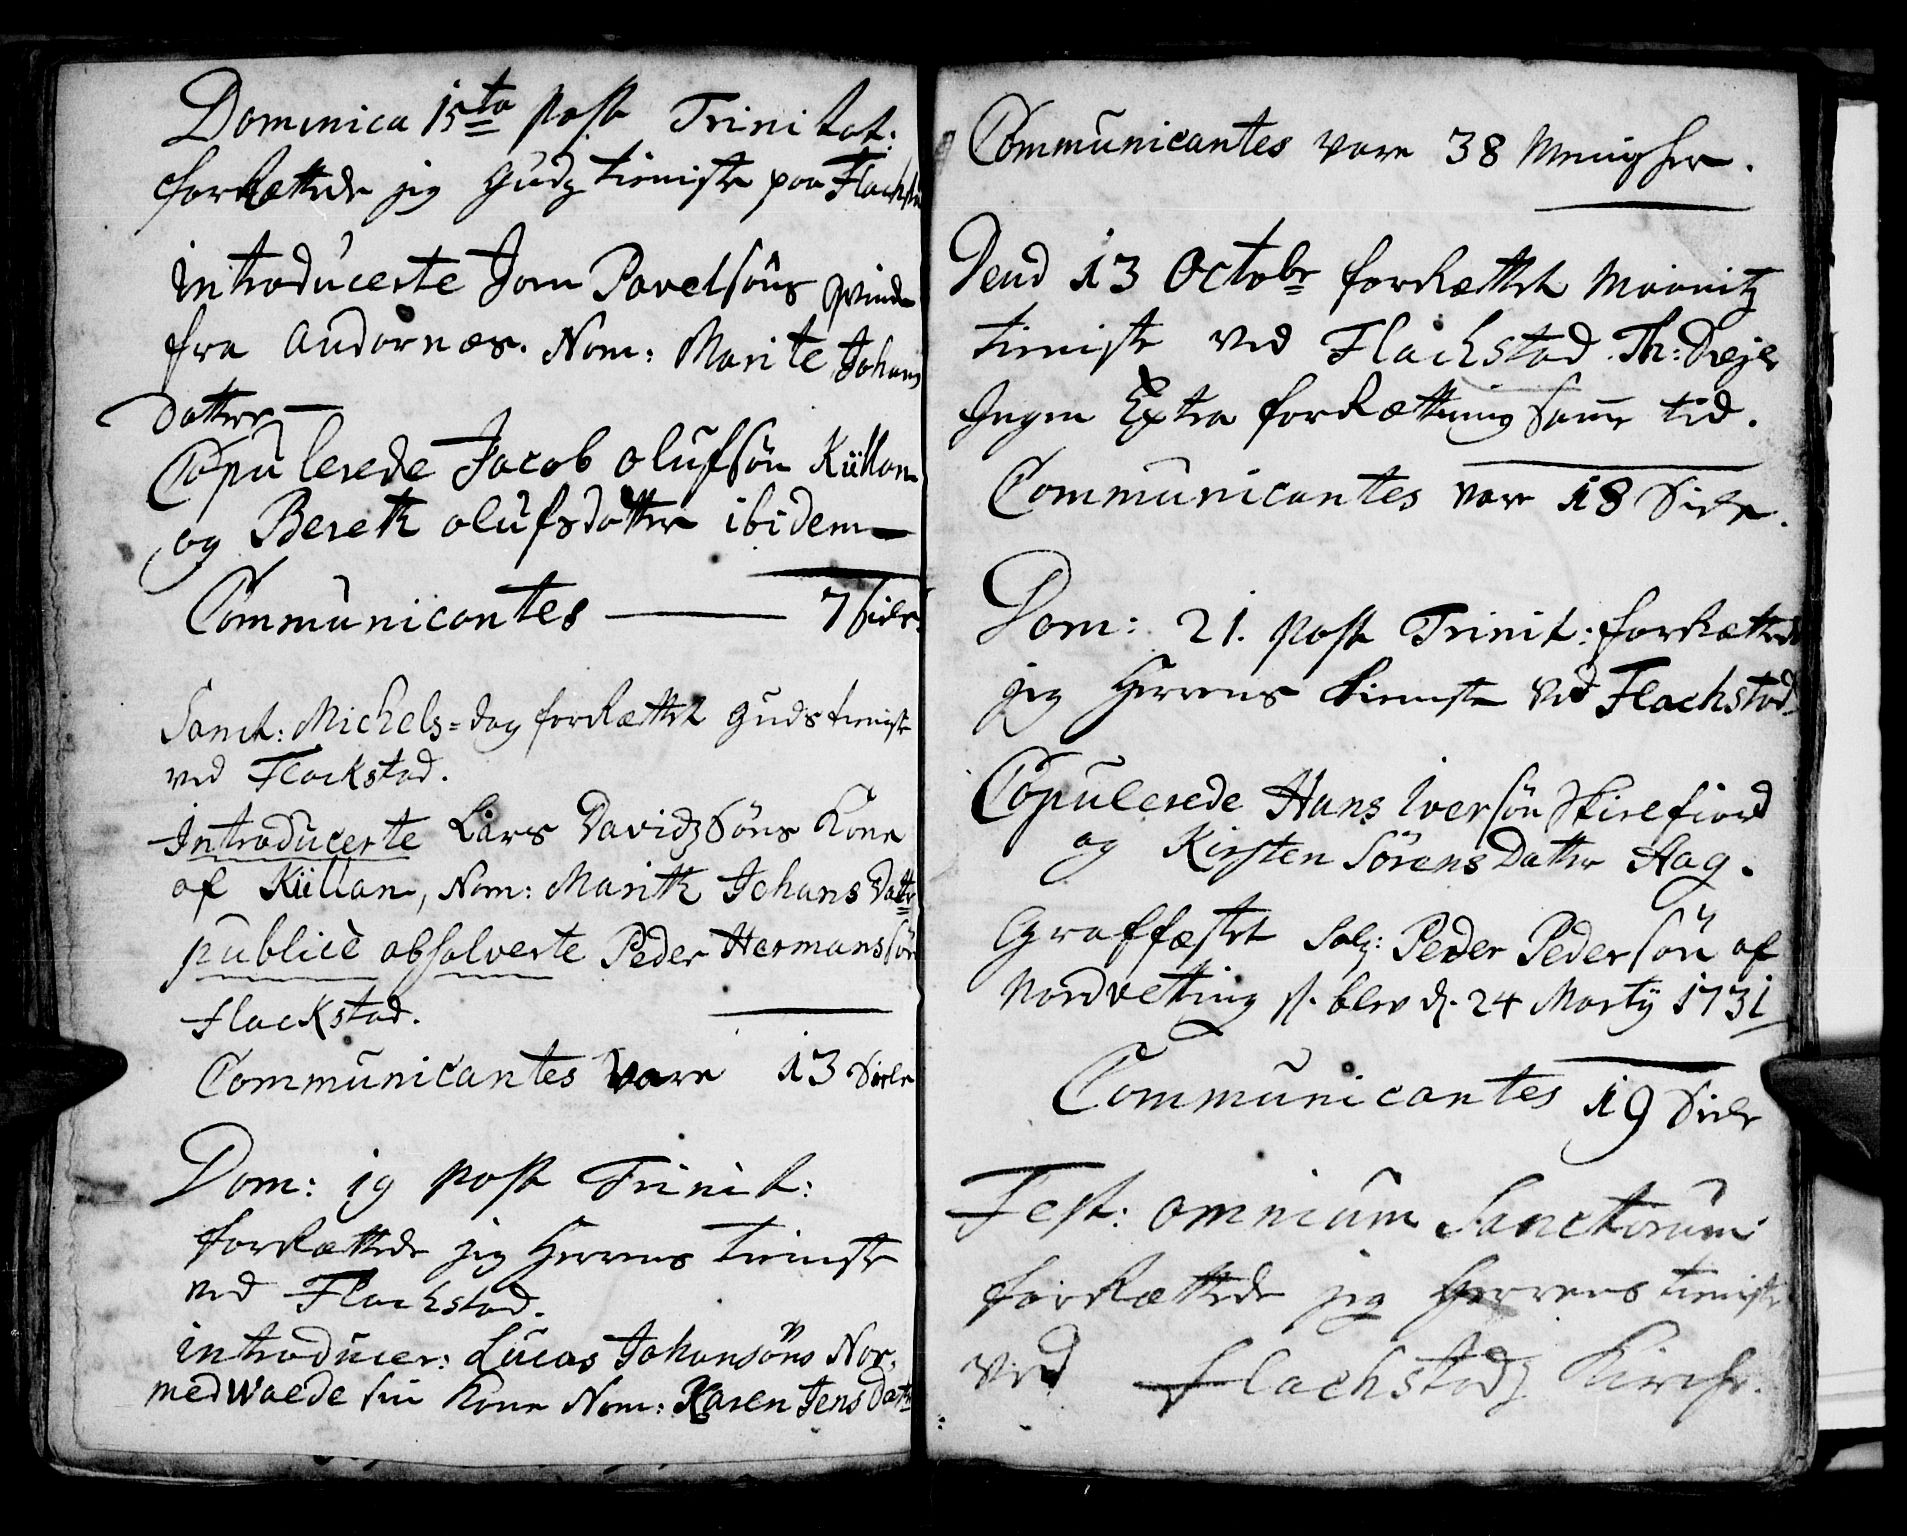 Dominica 15ta post Trinitat:
forRættede jeg Gudz tieniste paa Flachstad
introducerte Jom Pavelsøns qvinde
fra Andornæs. Nom: Marite Johans
Datter
Copulerede Jacob Olufsøn Küllan
og Bereth Olufsdatter ibidem
Communicantes 7 siele.
Sanct: Michels-dag forRættet Guds tieniste
ved Flackstad.
Introducerte Lars Davidz Søns Kone
af Küllan, Nom: Marith Johans Datter
publicè absolverte Peder Hermanssøn
Flackstad.
Communicantes vare 13 Siele
Dom: 19 post Trinit:
forRættede jeg Herrens tieniste
ved Flachstad.
introducer: Lucas Johansøns Nor-
medwaede sin Kone Nom: Karen Jens Datt
Communicantes vare 38 Menischer.
Dend 13 Octobr forRættet
tieniste ved Flachstad.
Ingen Extra forRættning Samme tid.
Communicantes vare 18 Siele.
Dom: 21. post Trinit: forRættede
jeg Herrens tieniste ved Flachstad.
Copulerede Hans Iversøn Skirefiord
og Kirsten Sørens Datter Hag.
Graffæstet Salj: Peder Pedersøn af
Nordvetting st. blev d. 24 Martij 1731
Communicantes 19 Siele
Fest: omnium Sanctorum
forRættede jeg Herrens tieniste
ved Flachstadz Kirche.